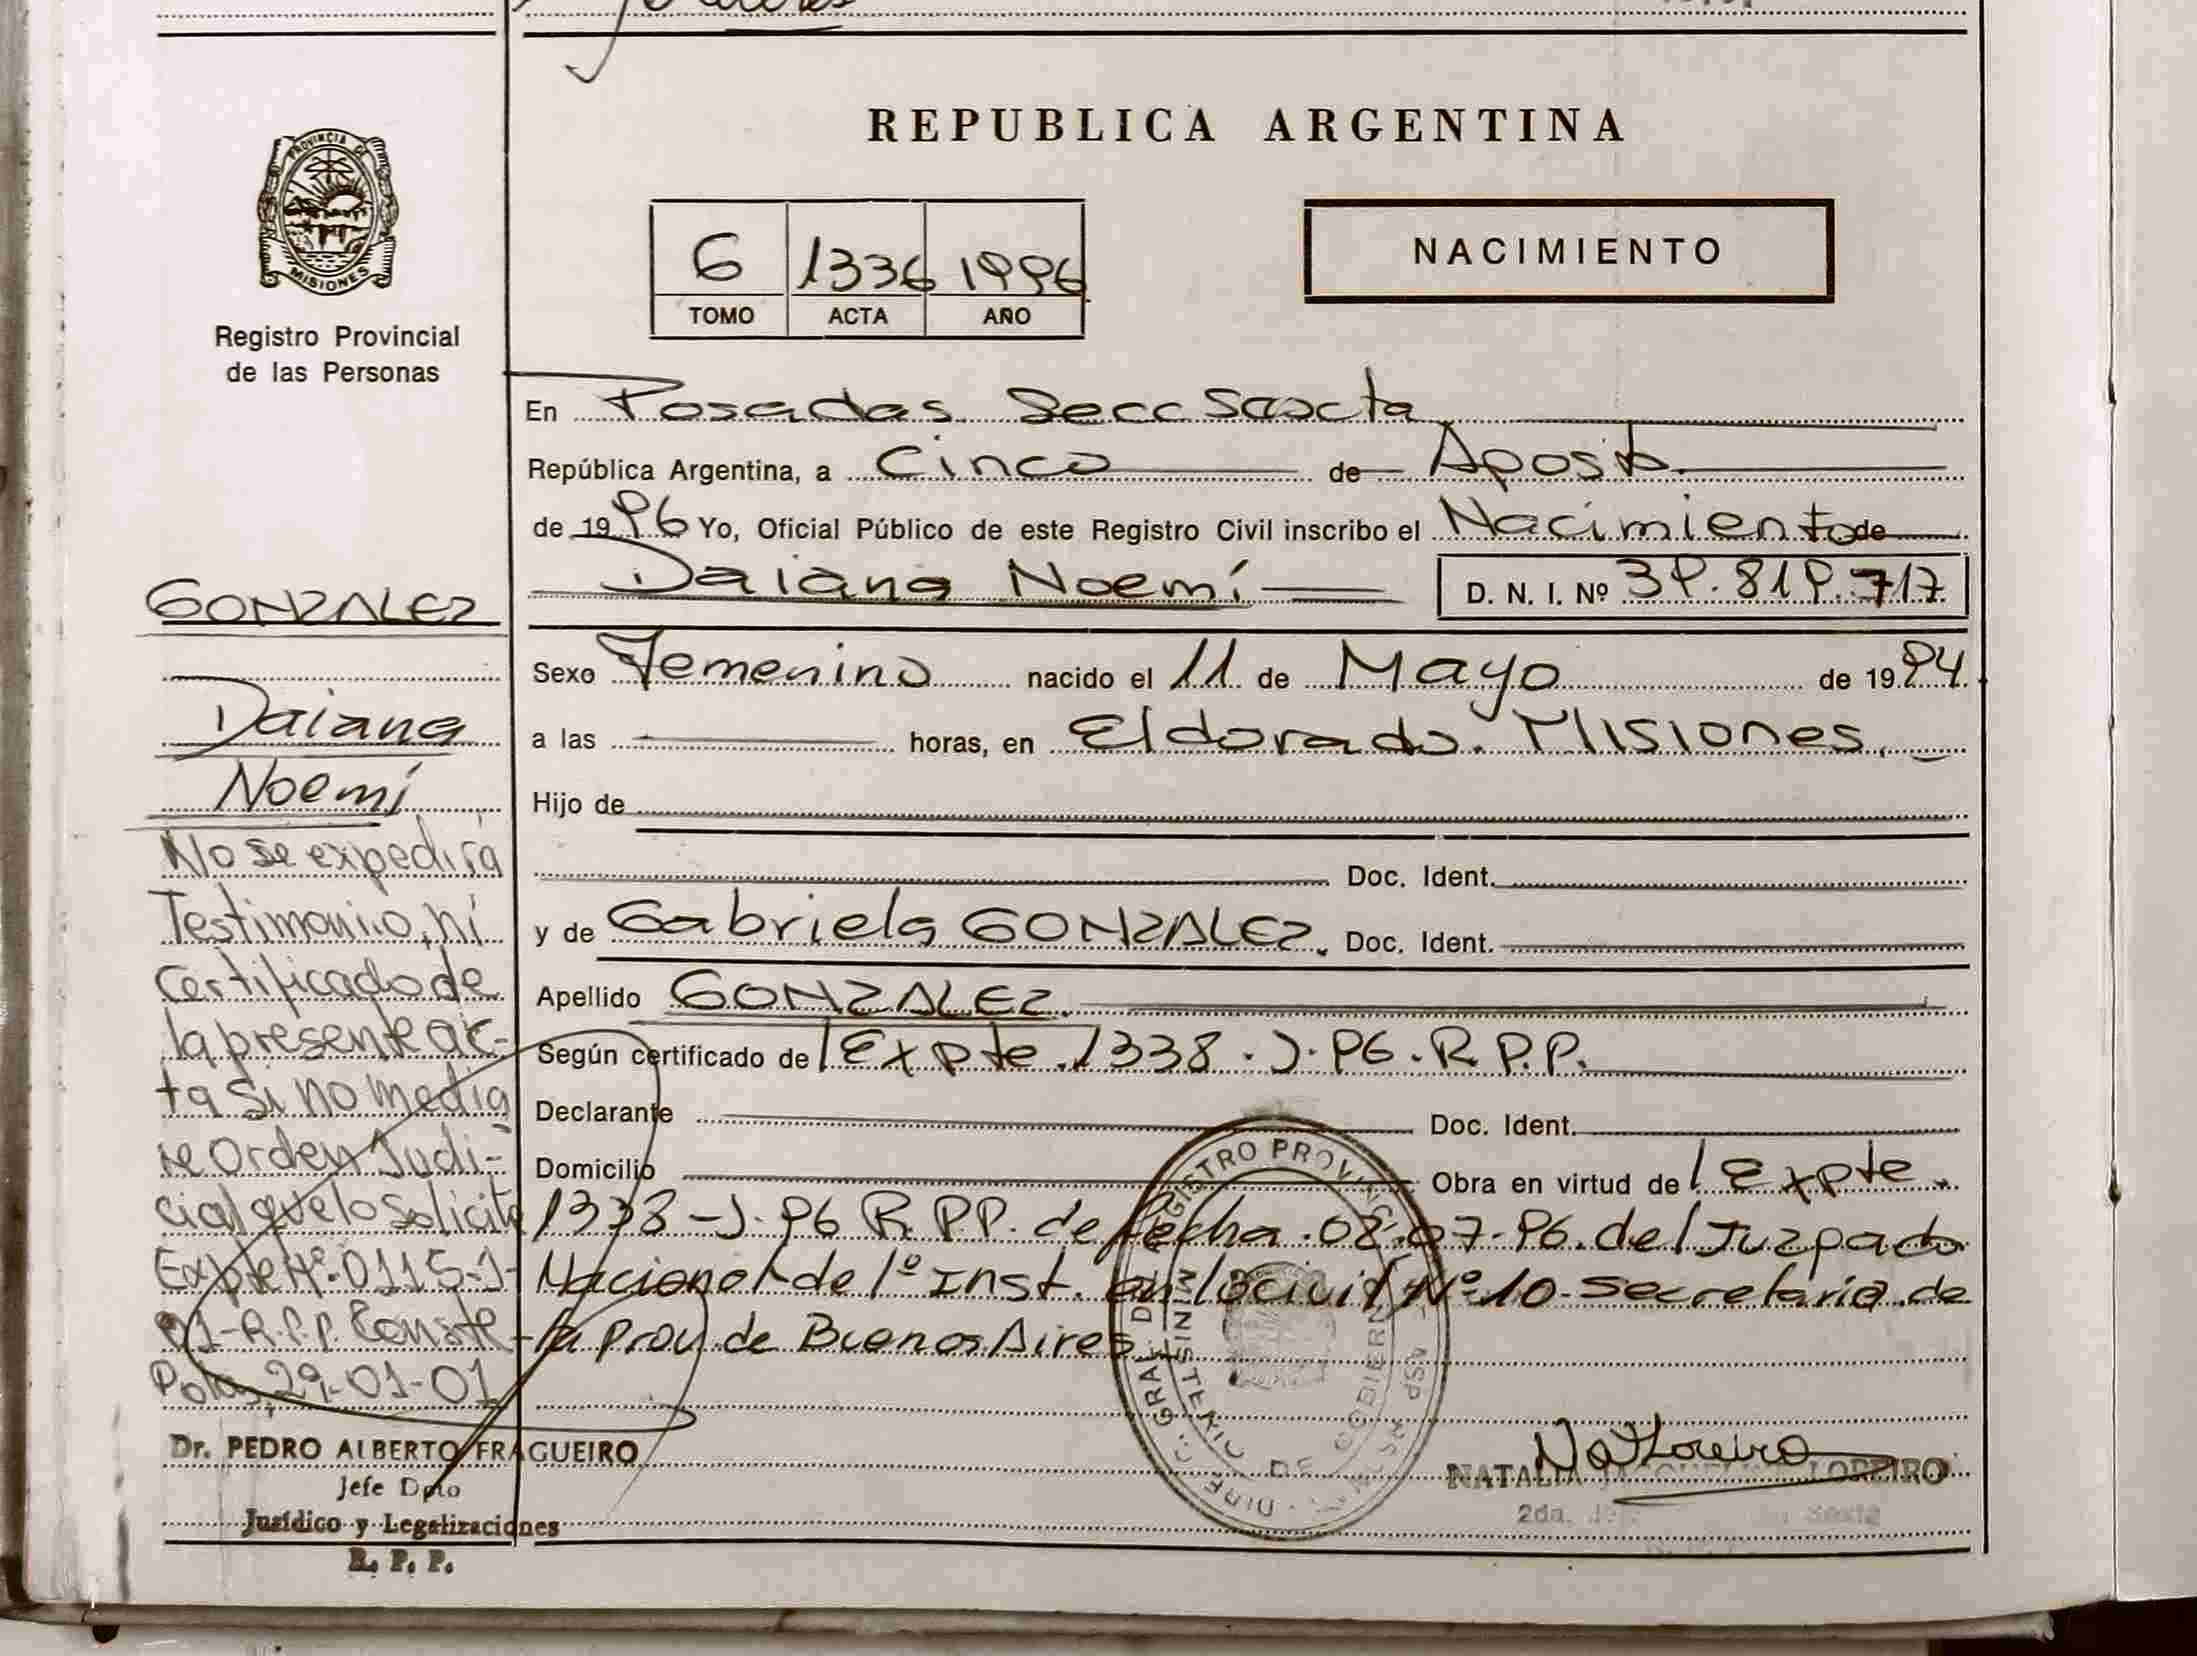 PROVINCIA DE
MISIONES
Registro Provincial
de las Personas
GONZALEZ
Daiana
Noemí
No se expedirá
Testimonio, ni
Certificado de
la presente ac-
ta si no media
re Orden Judi-
cial que lo solicite
Expte Nº 0115-J-
01-R.P.P. Conste
Pdas, 29-01-01
Dr. PEDRO ALBERTO FRAGUEIRO
Jefe Dpto
Jurídico y Legalizaciones
R. P. P.
REPUBLICA ARGENTINA
6 1336 1996
TOMO ACTA AÑO
NACIMIENTO
En Posadas Secc Sexcta
República Argentina, a Cinco de Agosto
de 1996 Yo, Oficial Público de este Registro Civil inscribo el Nacimiento de
Daiana Noemí D. N. I. Nº 39.819.717
Sexo Femenino nacido el 11 de Mayo de 1994
a las horas, en Eldorado. Misiones.
Hijo de
Doc. Ident.
y de Gabriela GONZALEZ. Doc. Ident.
Apellido GONZALEZ.
Según certificado de Expte. 1338.J.96.R.P.P.
Declarante Doc. Ident.
Domicilio Obra en virtud de Expte.
1338-J-96 R.P.P. de fecha 08-07-96. del Juzgado
Nacional de 1º Inst. en lo civil Nº 10 Secretaria de
la Prov de Buenos Aires
REGISTRO
MINISTERIO DE GOBIERNO
Nat Loreiro
NATALIA LOREIRO
2da. Sexta